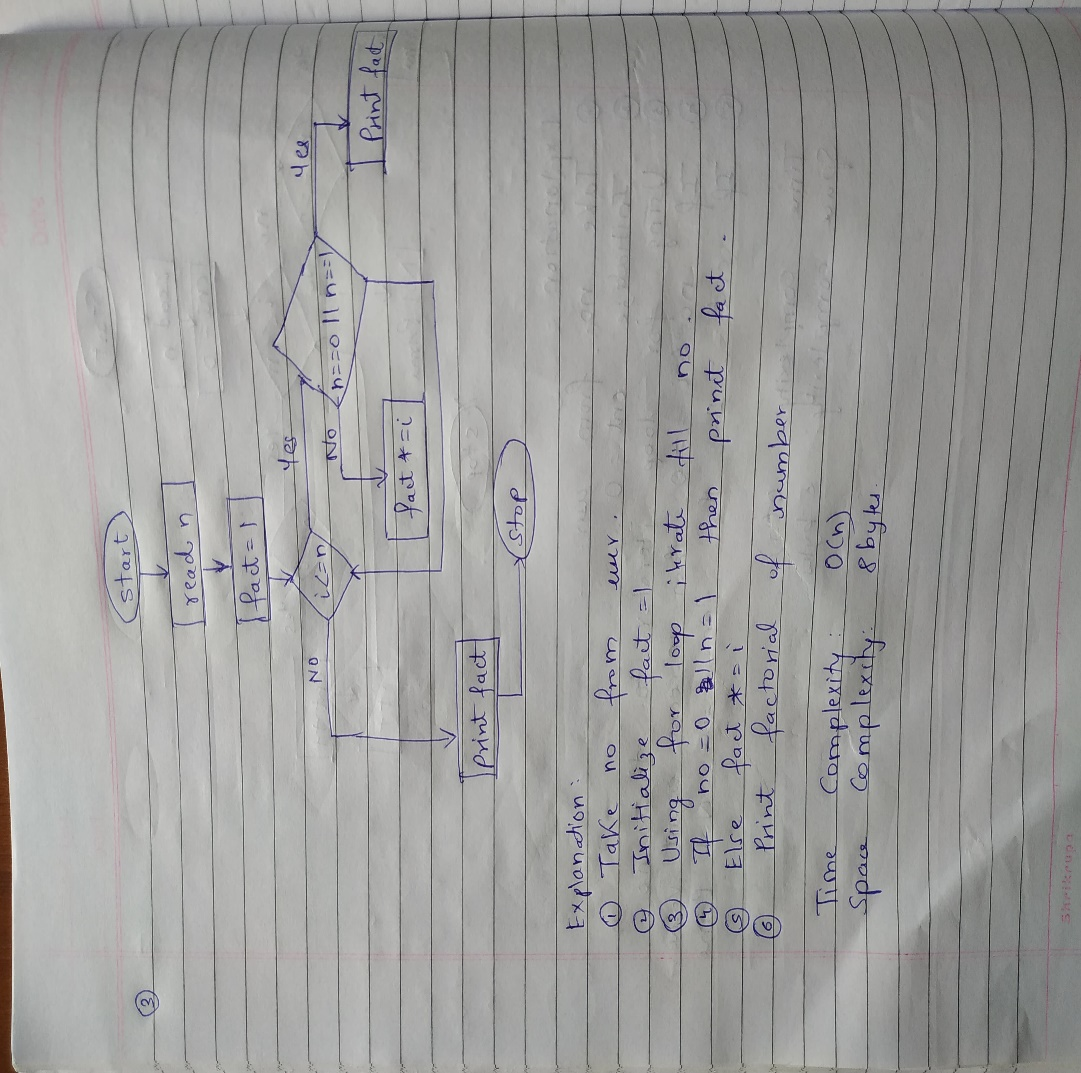 3
Start
read n
fact = 1
i<=n
Yes
n==0 || n==1
Yes
Print fact
No
fact *= i
NO
Print fact
Stop
Explanation:
① Take no from user.
② Initialize fact = 1
③ Using for loop itrate till no.
④ If no = 0 || n = 1 then print fact.
⑤ Else fact *= i
⑥ Print factorial of number
Time Complexity: O(n)
Space Complexity: 8 bytes.